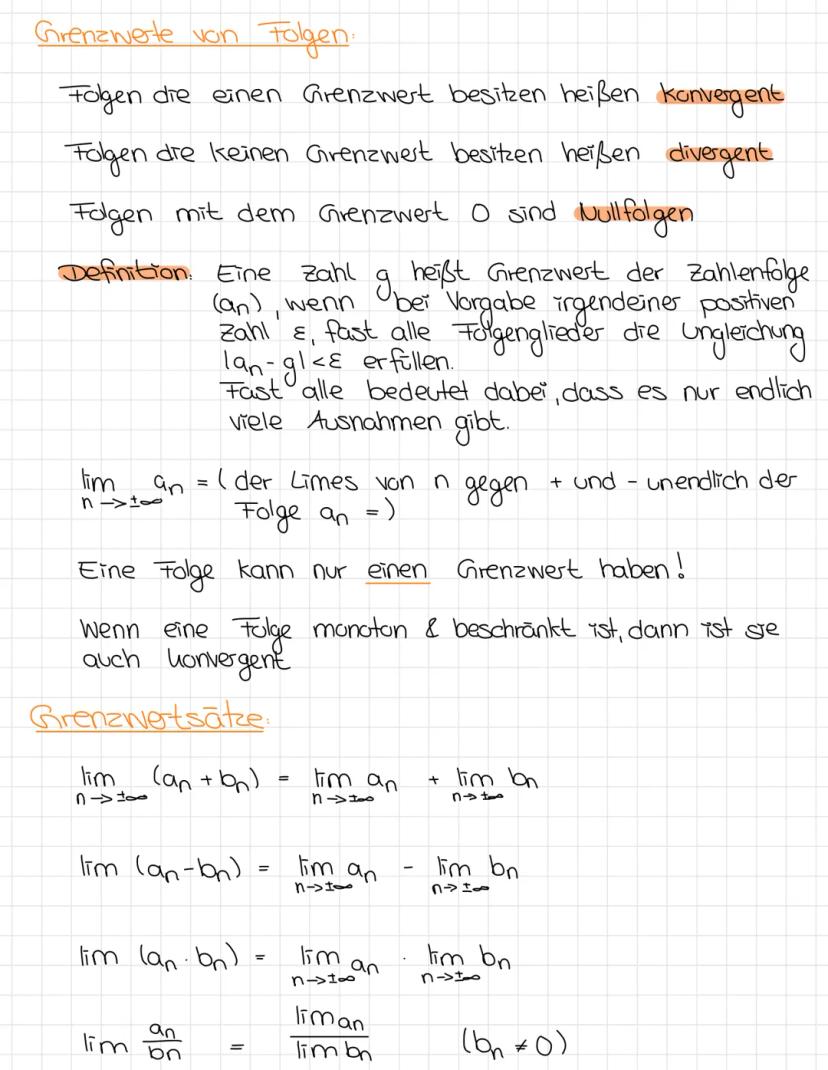 Grenzwerte von Folgen:
Folgen die einen Grenzwert besitzen heißen konvergent
Folgen die keinen Grenzwert besitzen heißen divergent
Folgen mit dem Grenzwert 0 sind Nullfolgen
Definition: Eine Zahl g heißt Grenzwert der Zahlenfolge
(an), wenn bei Vorgabe irgendeiner positiven
Zahl ε, fast alle Folgenglieder die Ungleichung
|an - g| < ε erfüllen.
Fast alle bedeutet dabei, dass es nur endlich
viele Ausnahmen gibt.
lim an = ( der Limes von n gegen + und - unendlich der
n → ±∞
Folge an = )
Eine Folge kann nur einen Grenzwert haben!
Wenn eine Folge monoton & beschränkt ist, dann ist sie
auch konvergent
Grenzwertsätze:
lim (an + bn) = lim an + lim bn
n → ±∞ n → ±∞ n → ±∞
lim (an - bn) = lim an - lim bn
n → ±∞ n → ±∞
lim (an · bn) = lim an · lim bn
n → ±∞ n → ±∞
lim an/bn = lim an/lim bn (bn ≠ 0)